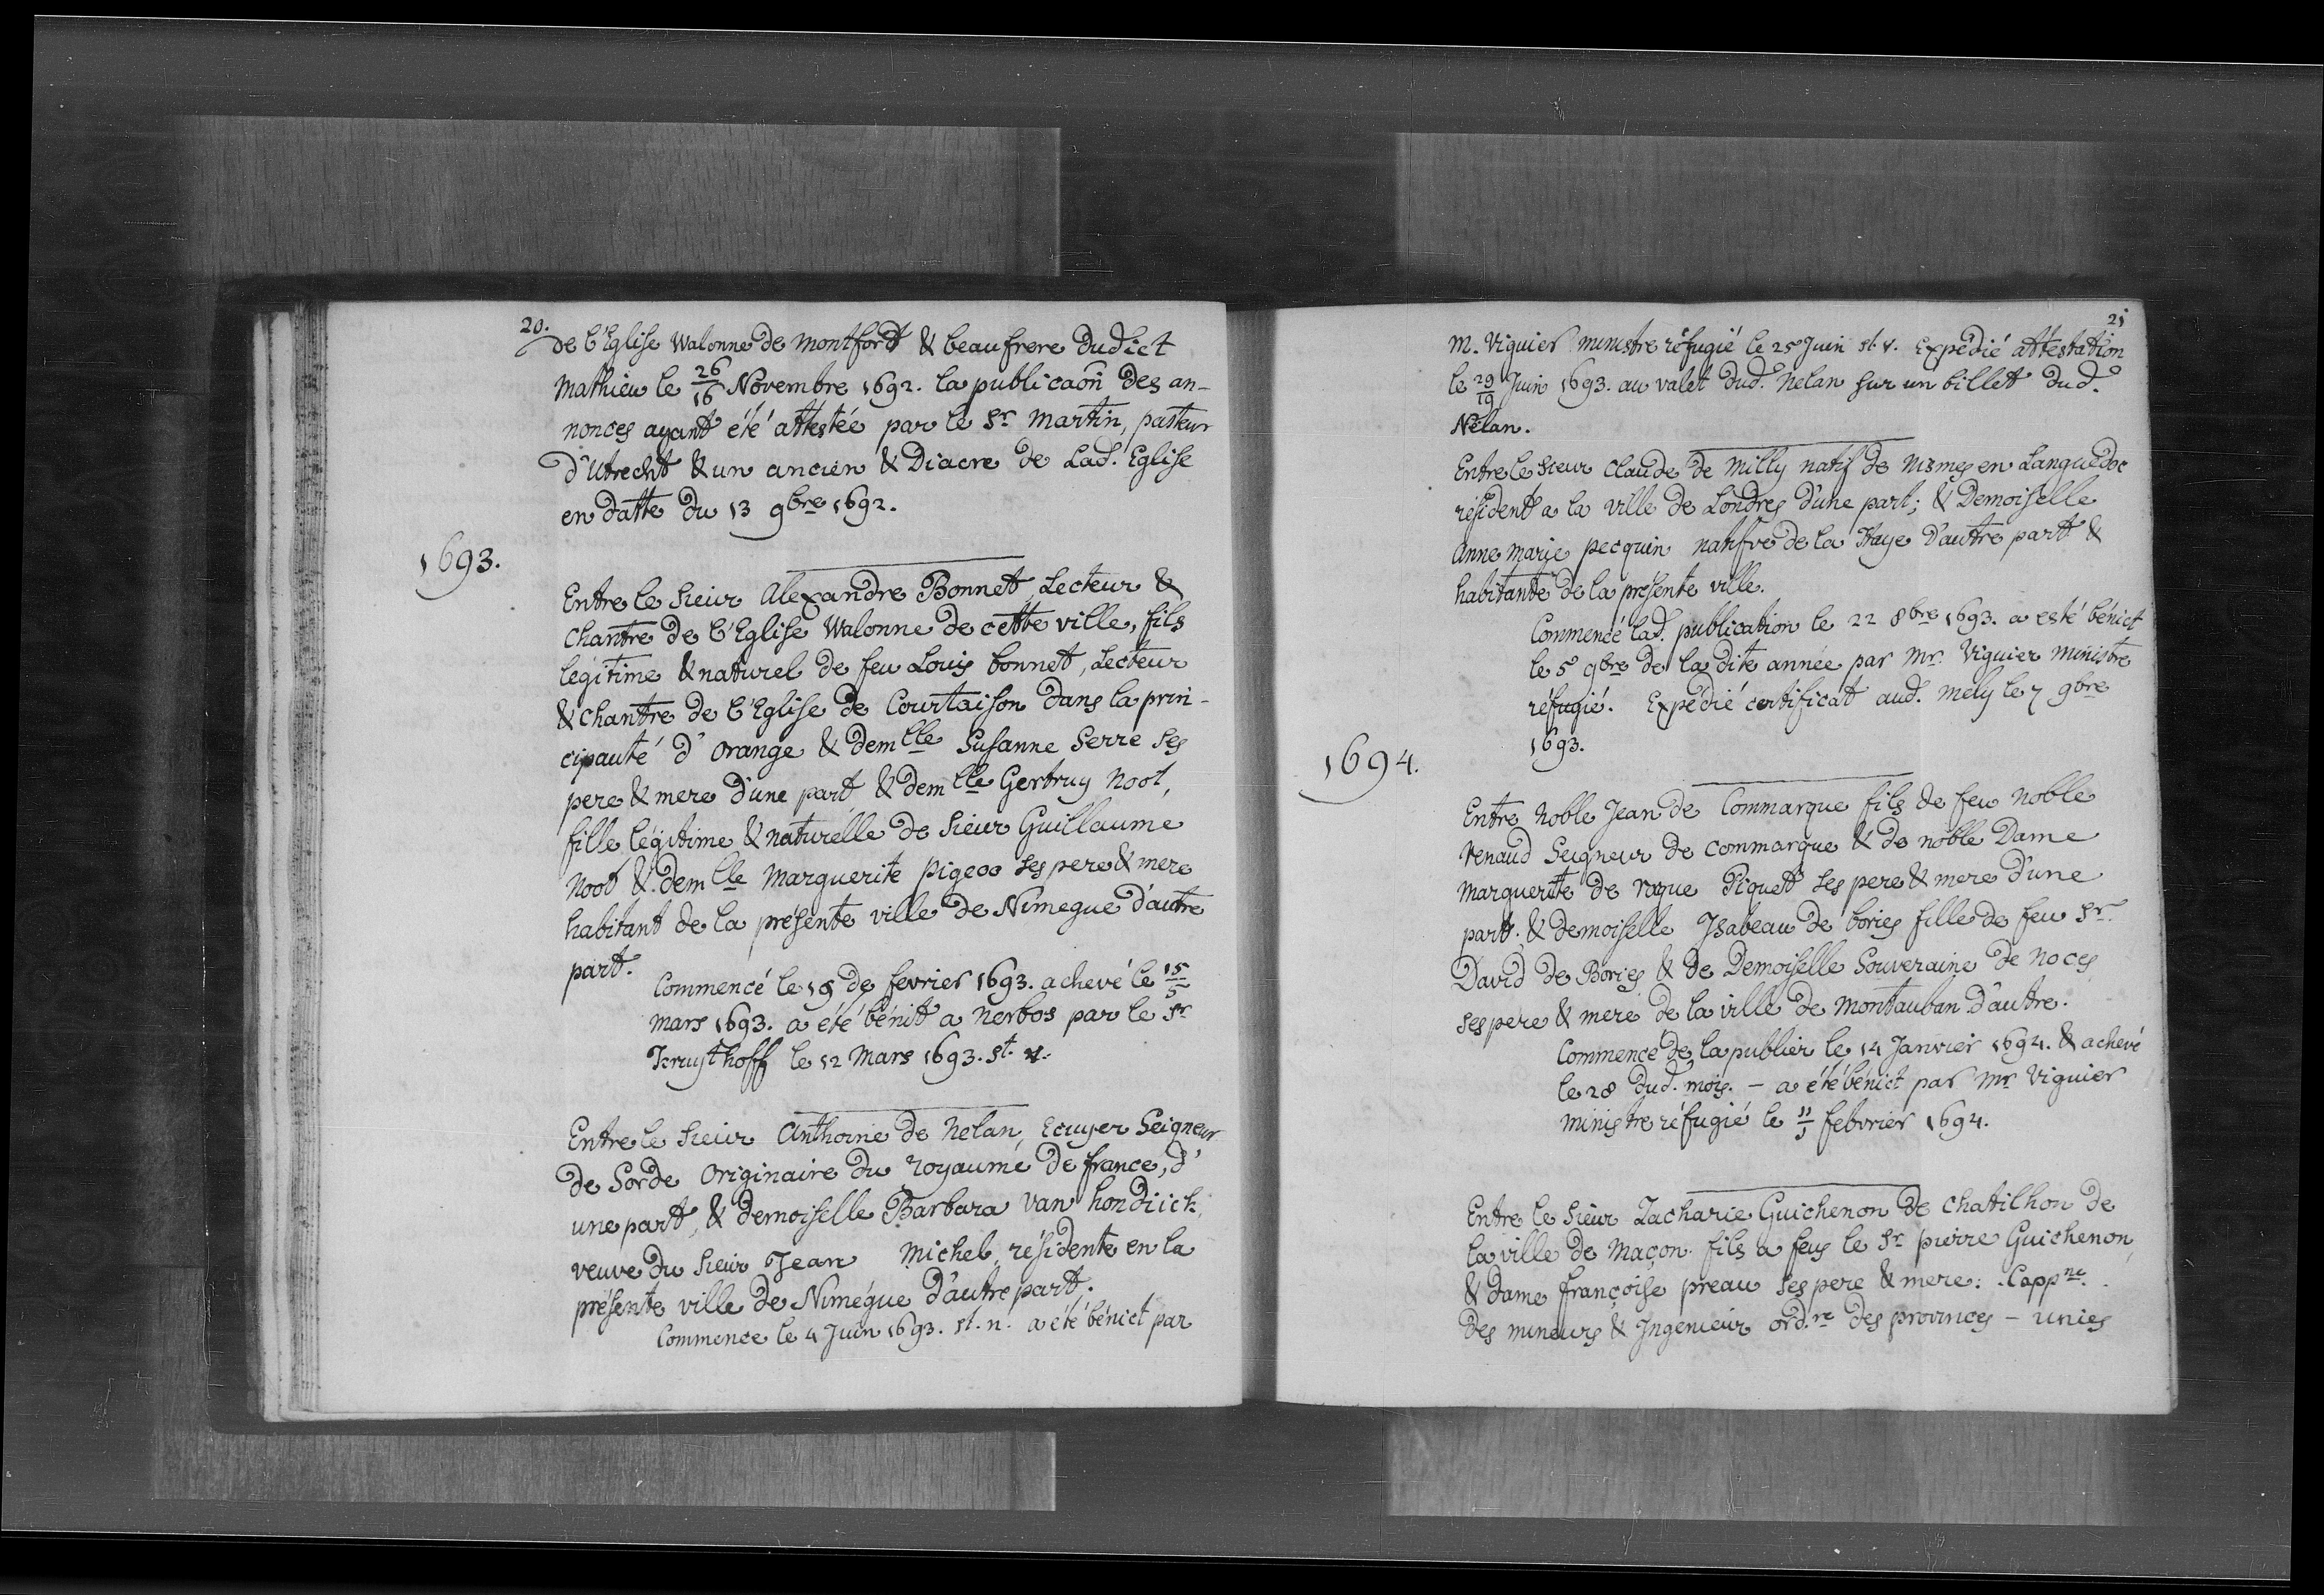 20.
de l'Eglise Walonne de montfort & beaufrere dudict
Mathieu le 26/16 Novembre 1692. la publicaôn des an-
nonces ayant été attéstée par le Sr Martin, pasteur
d'Utrecht & un ancien & Diacre de Lad. Eglise
en datte du 13 9bre 1692.
1693.
Entre le Sieur Alexandre Bonnet, Lecteur &
Chantre de l'Eglise Walonne de cette ville, fils
legitime & naturel de feu Louis bonnet, Lecteur
& Chantre de l'Eglise de Courtaison dans la prin-
cipauté d'orange & demlle Susanne Serre Ses
pere & mere d'une part & demlle Gertruy Noot,
fille légitime & naturélle de Sieur Guillaume
Noot & demlle Marguerite pigeos ses pere & mere
habitant de la présente ville de Nimegue d'autre
part.
Commencé le 19 de fevrier 1693. achevé le 15/5
mars 1693. a été bénit a Nerbos par le Sr
Kruythoff le 12 Mars 1693. St. v.
Entre le Sieur Anthoine de Nelan, Ecuyer Seigneur
de Sorde originaire du royaume de france, d'
une part, & demoiselle Barbara van hondiick,
veuve du Sieur Jean Michel, résidente en la
présente ville de Nimégue d'autre part.
Commence le 4 Juin 1693. st. n. a été bénict par
21
M. Viguier ministre réfugié le 25 Juin st. v. Expédié attestation
le 29/19 Juin 1693. au valet dud. Nelan sur un billet dud.
Nelan.
Entre le Sieur Claude de Milly natif de Nismes en Languedoc
résident a la ville de Londres d'une part; & Demoiselle
Anne Marie pecquin natifve de la Haye d'autre part &
habitante de la présente ville.
Commencé lad. publication le 22 8bre 1693. a esté bénict
le 5 9bre de la dite année par Mr. Viguier Ministre
réfugié. Expédié certificat aud. Mely le 7 9bre
1693.
1694.
Entre Noble Jean de Commarque fils de feu Noble
Renaud Seigneur de commarque & de noble Dame
Marguerite de roque Piquet ses pere & mere d'une
part. & demoiselle Isabeau de bories fille de feu Sr
David de Bories & de Demoiselle Souveraine de Noces
ses pere & mere de la ville de Montauban d'autre.
Commence de la publier le 14 Janvier 1694. & achevé
le 28 dud. mois. - a été bénict par Mr Viguier
ministre réfugié le 11/1 febvrier 1694.
Entre le Sieur Zacharie Guichenon de Chatilhon de
la ville de Maçon fils a feus le Sr pierre Guichenon,
& Dame françoise preau ses pere & mere: Cappne
des mineurs & Ingenieur ordre des provinces - unies